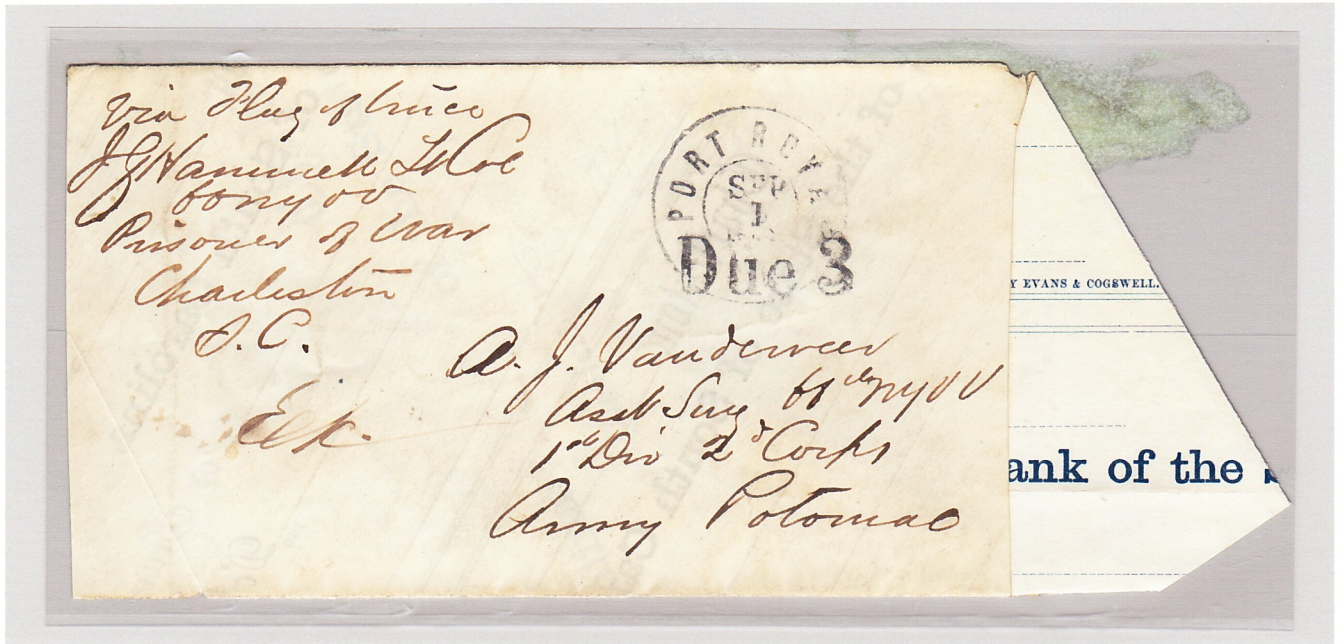 Via Flag of truce
J G Hammell Lt Col
66 NY VV
Prisoner of War
Charleston
S.C.
PORT ROYAL
SEP
1
Due 3
A. J. Vanderveer
Asst Surg 66th NYVV
1st Div 2d Corps
Army Potomac
Y EVANS & COGSWELL.
ank of the S